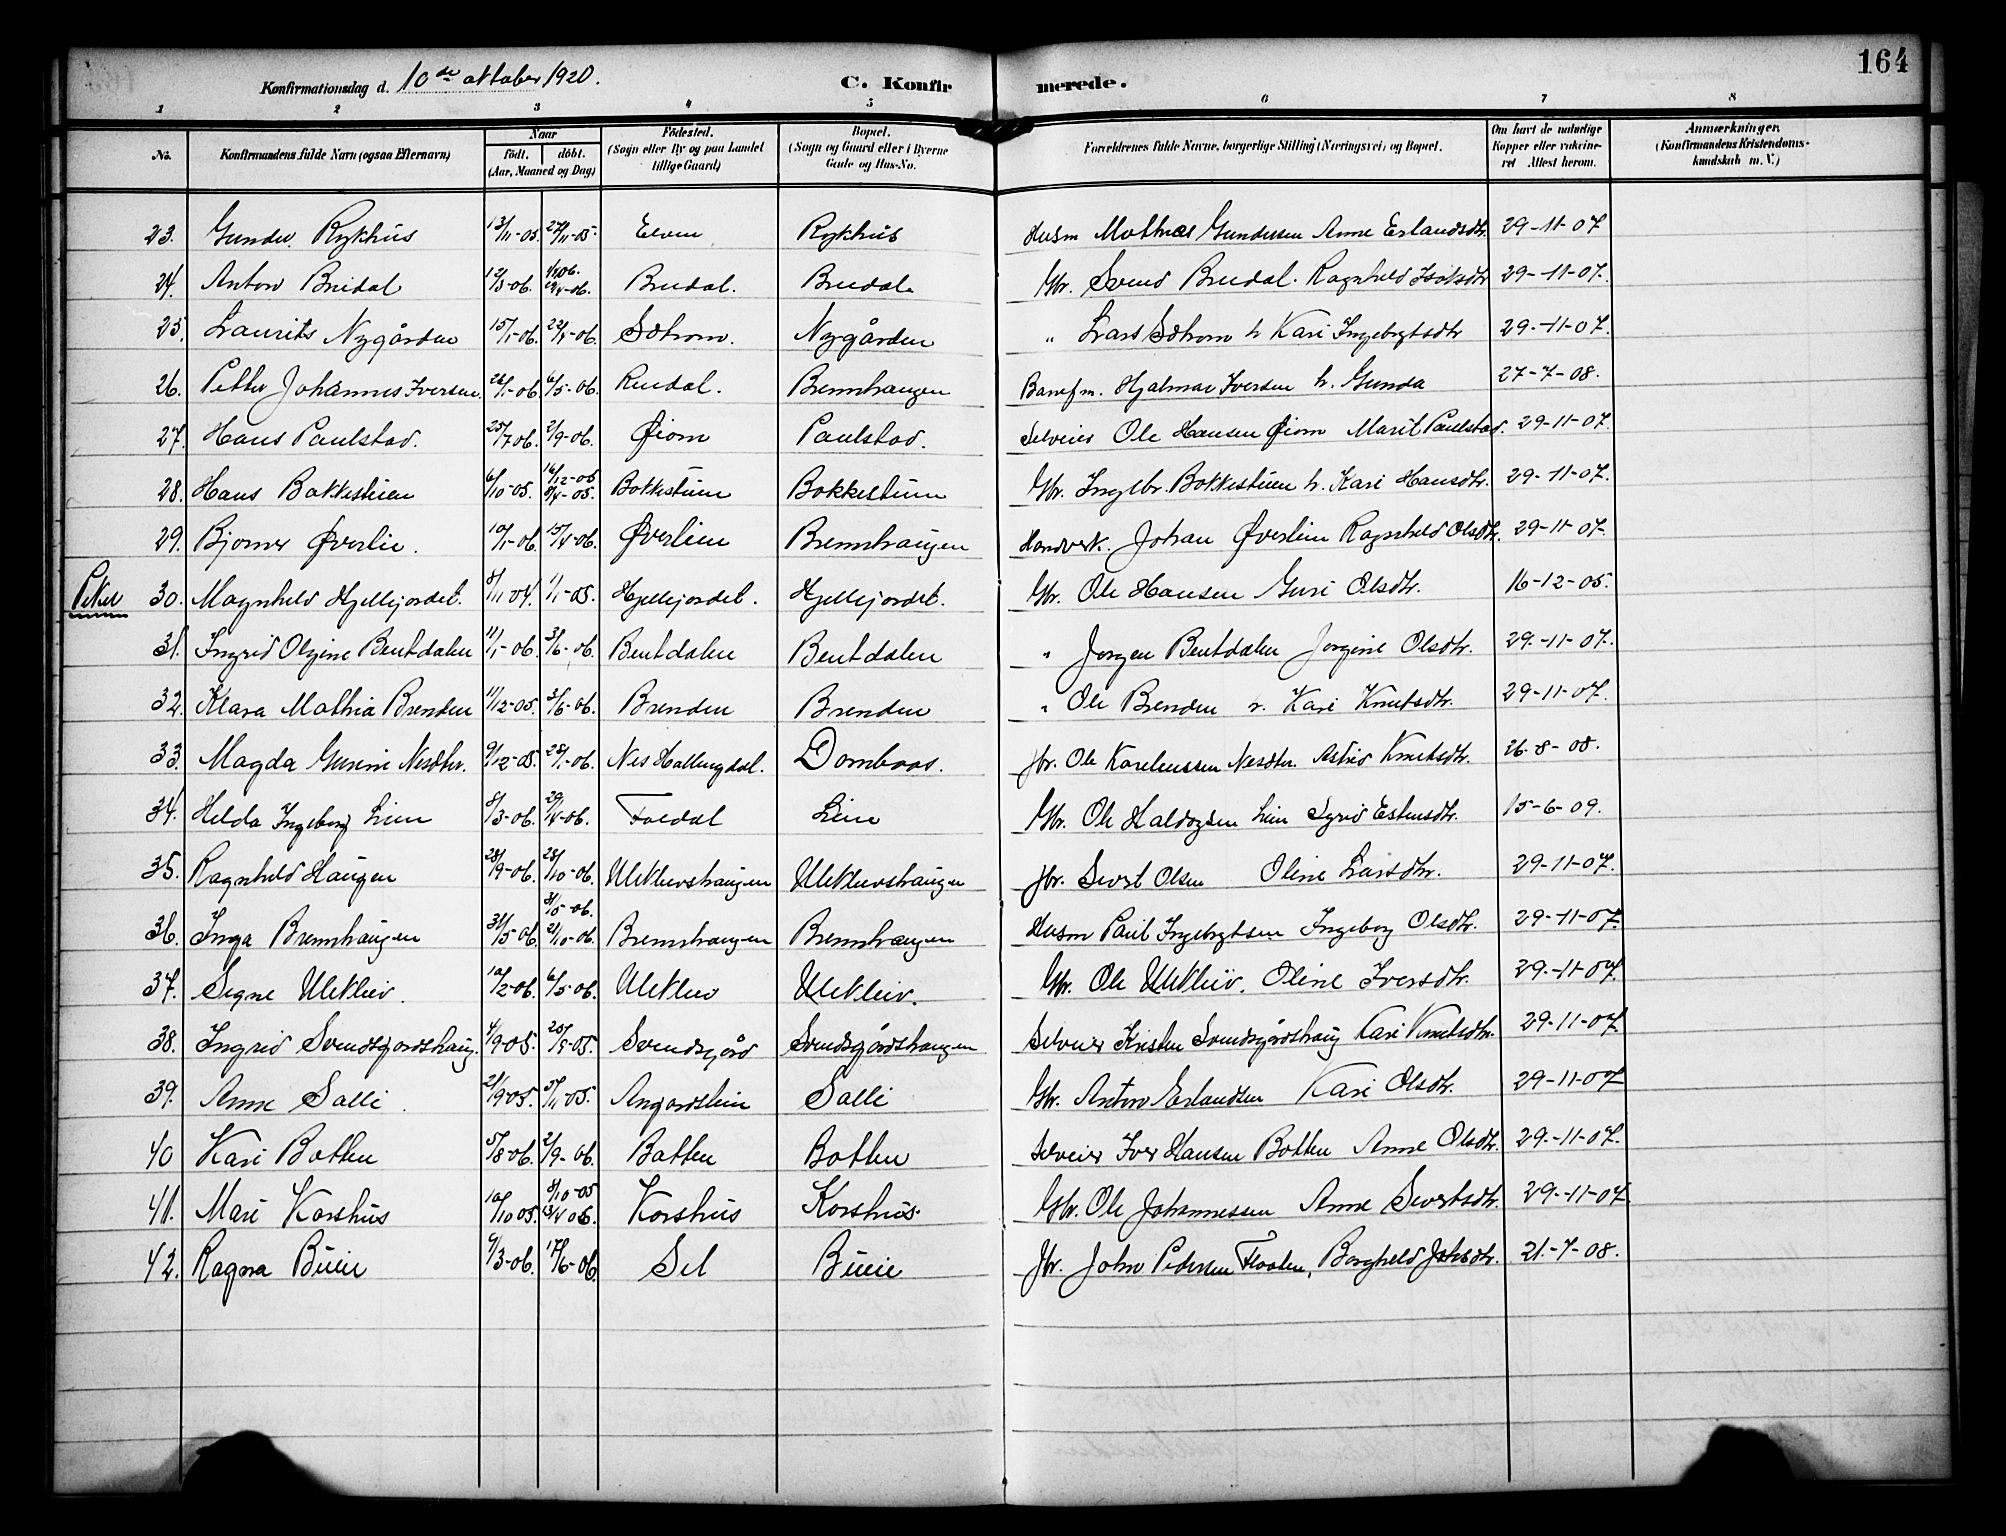 164
Konfirmationsdag d. 10de oktober 1920. C. Konfirmerede.
1 2 3 4 5 6 7 8
No. Konfirmandens fulde Navn (ogsaa Efternavn) Naar födt. döbt. (Aar, Maaned og Dag) Födested. (Sogn eller By og paa Landet tillige Gaard) Bopæl. (Sogn og Gaard eller i Byerne Gade og Hus-No. Forældrenes fulde Navne, borgerlige Stilling (Næringsvei) og Bopæl. Om havt de naturlige Kopper eller vakcineret Attest herom. Anmærkninger. (Konfirmandens Kristendomskundskab m. V.)
23. Gunder Rykhus 13/11-05. 27/11-05. Rykhus Husm Mathias Gundersen Anne Erlandsdtr. 29-11-07
24. Anton Bredal 12/3-06. Bredal. Bredal. Gbr. Svend Bredal. Ragnhild 29-11-07.
25. Laurits Nygården 15/1-06. 22/4-06. Sætrom. Nygården " Lars Sætrom h Kari Ingebrigtsdtr 29-11-07.
26. Petter Johannes Iversen. 26/1-06. 6/5-06. Rendal. Brennhaugen Banefm. Hjalmar Iversen h. Gunda 27-7-08.
27. Hans Paulstad. 25/7 06. 2/9-06. Øiom Paulstad. Selveier Ole Hansen Øiom Marit Paulstad. 29-11-07.
28. Hans Bakkestuen 6/10-05. 16/12-05 Bakkestuen Bakkestuen Gbr. Ingebr. Bakkestuen h. Kari Hansdtr. 29-11-07.
29. Bjarne Øverlie. 10/1-06. 15/4-06. Øverlien Brennhaugen Handverk. Johan Øverlien Ragnhild Olsdtr. 29-11-07.
Piker 30. Magnhild Hjellejordet. 8/11 04. 1/1-05. Hjellejordet. Hjellejordet. Gbr. Ole Hansen Guri Olsdtr. 16-12-05.
31. Ingrid Olgine Bentdalen 11/1-06. 3/6-06. Bentdalen Bentdalen " Jørgen Bentdalen Jørgine Olsdtr. 29-11-07.
32. Klara Mathea Brenden 11/12-05. 3/6-06. Brenden Brenden " Ole Brenden h. Kari Knutsdtr. 29-11-07.
33. Magda Gurine 9/12-05. 28/1-06. Nes Hallingdal. Dombaas. Jbr. Ole Karelius­sen Astrid Knutsdtr. 26-8-08.
34. Helda Ingeborg Lien 8/3-06. 29/4-06. Foldal Lien Gbr. Ole Haldogsen Lien Syrid Estensdtr. 15-6-09.
35. Ragnhild Haugen 28/9-06. 28/10-06. Ulekleivshaugen Ulekleivshaugen Jbr. Sivert Olsen Oline Larsdtr. 29-11-07.
36. Inga Brennhaugen 31/5-06. 21/10-06. Brennhaugen Brennhaugen Husm Paul Ingebrigtsen Ingeborg Olsdtr. 29-11-07.
37. Signe Ulekleiv. 10/2-06. 6/5-06. Ulekleiv Ulekleiv. Gbr. Ole Ulekleiv. Oline Iversdtr. 29-11-07.
38. Ingrid Svendsgårdshaug. 4/9-05. Svendsgård Svendsgårdshaugen Selveier Kristen Svendsgårdshaug Kari Knutsdtr. 29-11-07.
39. Anne Solli. 21/9-05. Angardslien Solli Gbr. Anton Erlandsen Kari Olsdtr. 29-11-07
40 Kari Botten 5/8-06. 2/9-06. Botten Botten Selveier Iver Hansen Botten Anne Olsdtr. 29-11-07.
41. Mari Korshus 10/10 05. Korshus Korshus. Gbr. Ole Johannessen Anne Sivertsdtr. 29-11-07
42. Ragna Buee 9/3-06. 17/6-06. Sel Buee Jbr. John Pedersen Borghild 21-7-08.